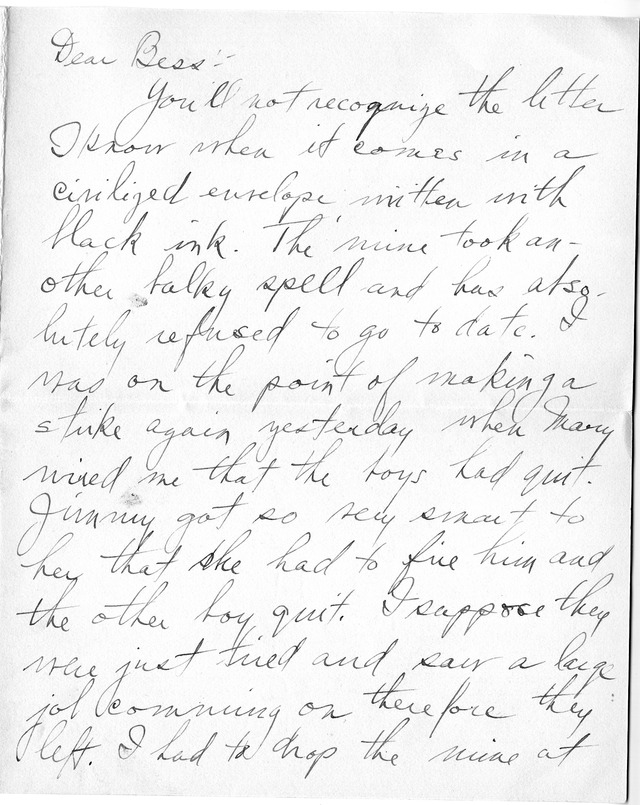 Dear Bess:-
You'll not recognize the letter
I know when it comes in a
civilized envelope written with
black ink. The mine took an-
other balky spell and has abso-
lutely refused to go to date. I
was on the point of making a
strike again yesterday when Mary
wired me that the boys had quit.
Jimmy got so very smart to
her that she had to fire him and
the other boy quit. I suppose they
were just tired and saw a large
job comming on therefore they
left. I had to drop the mine at